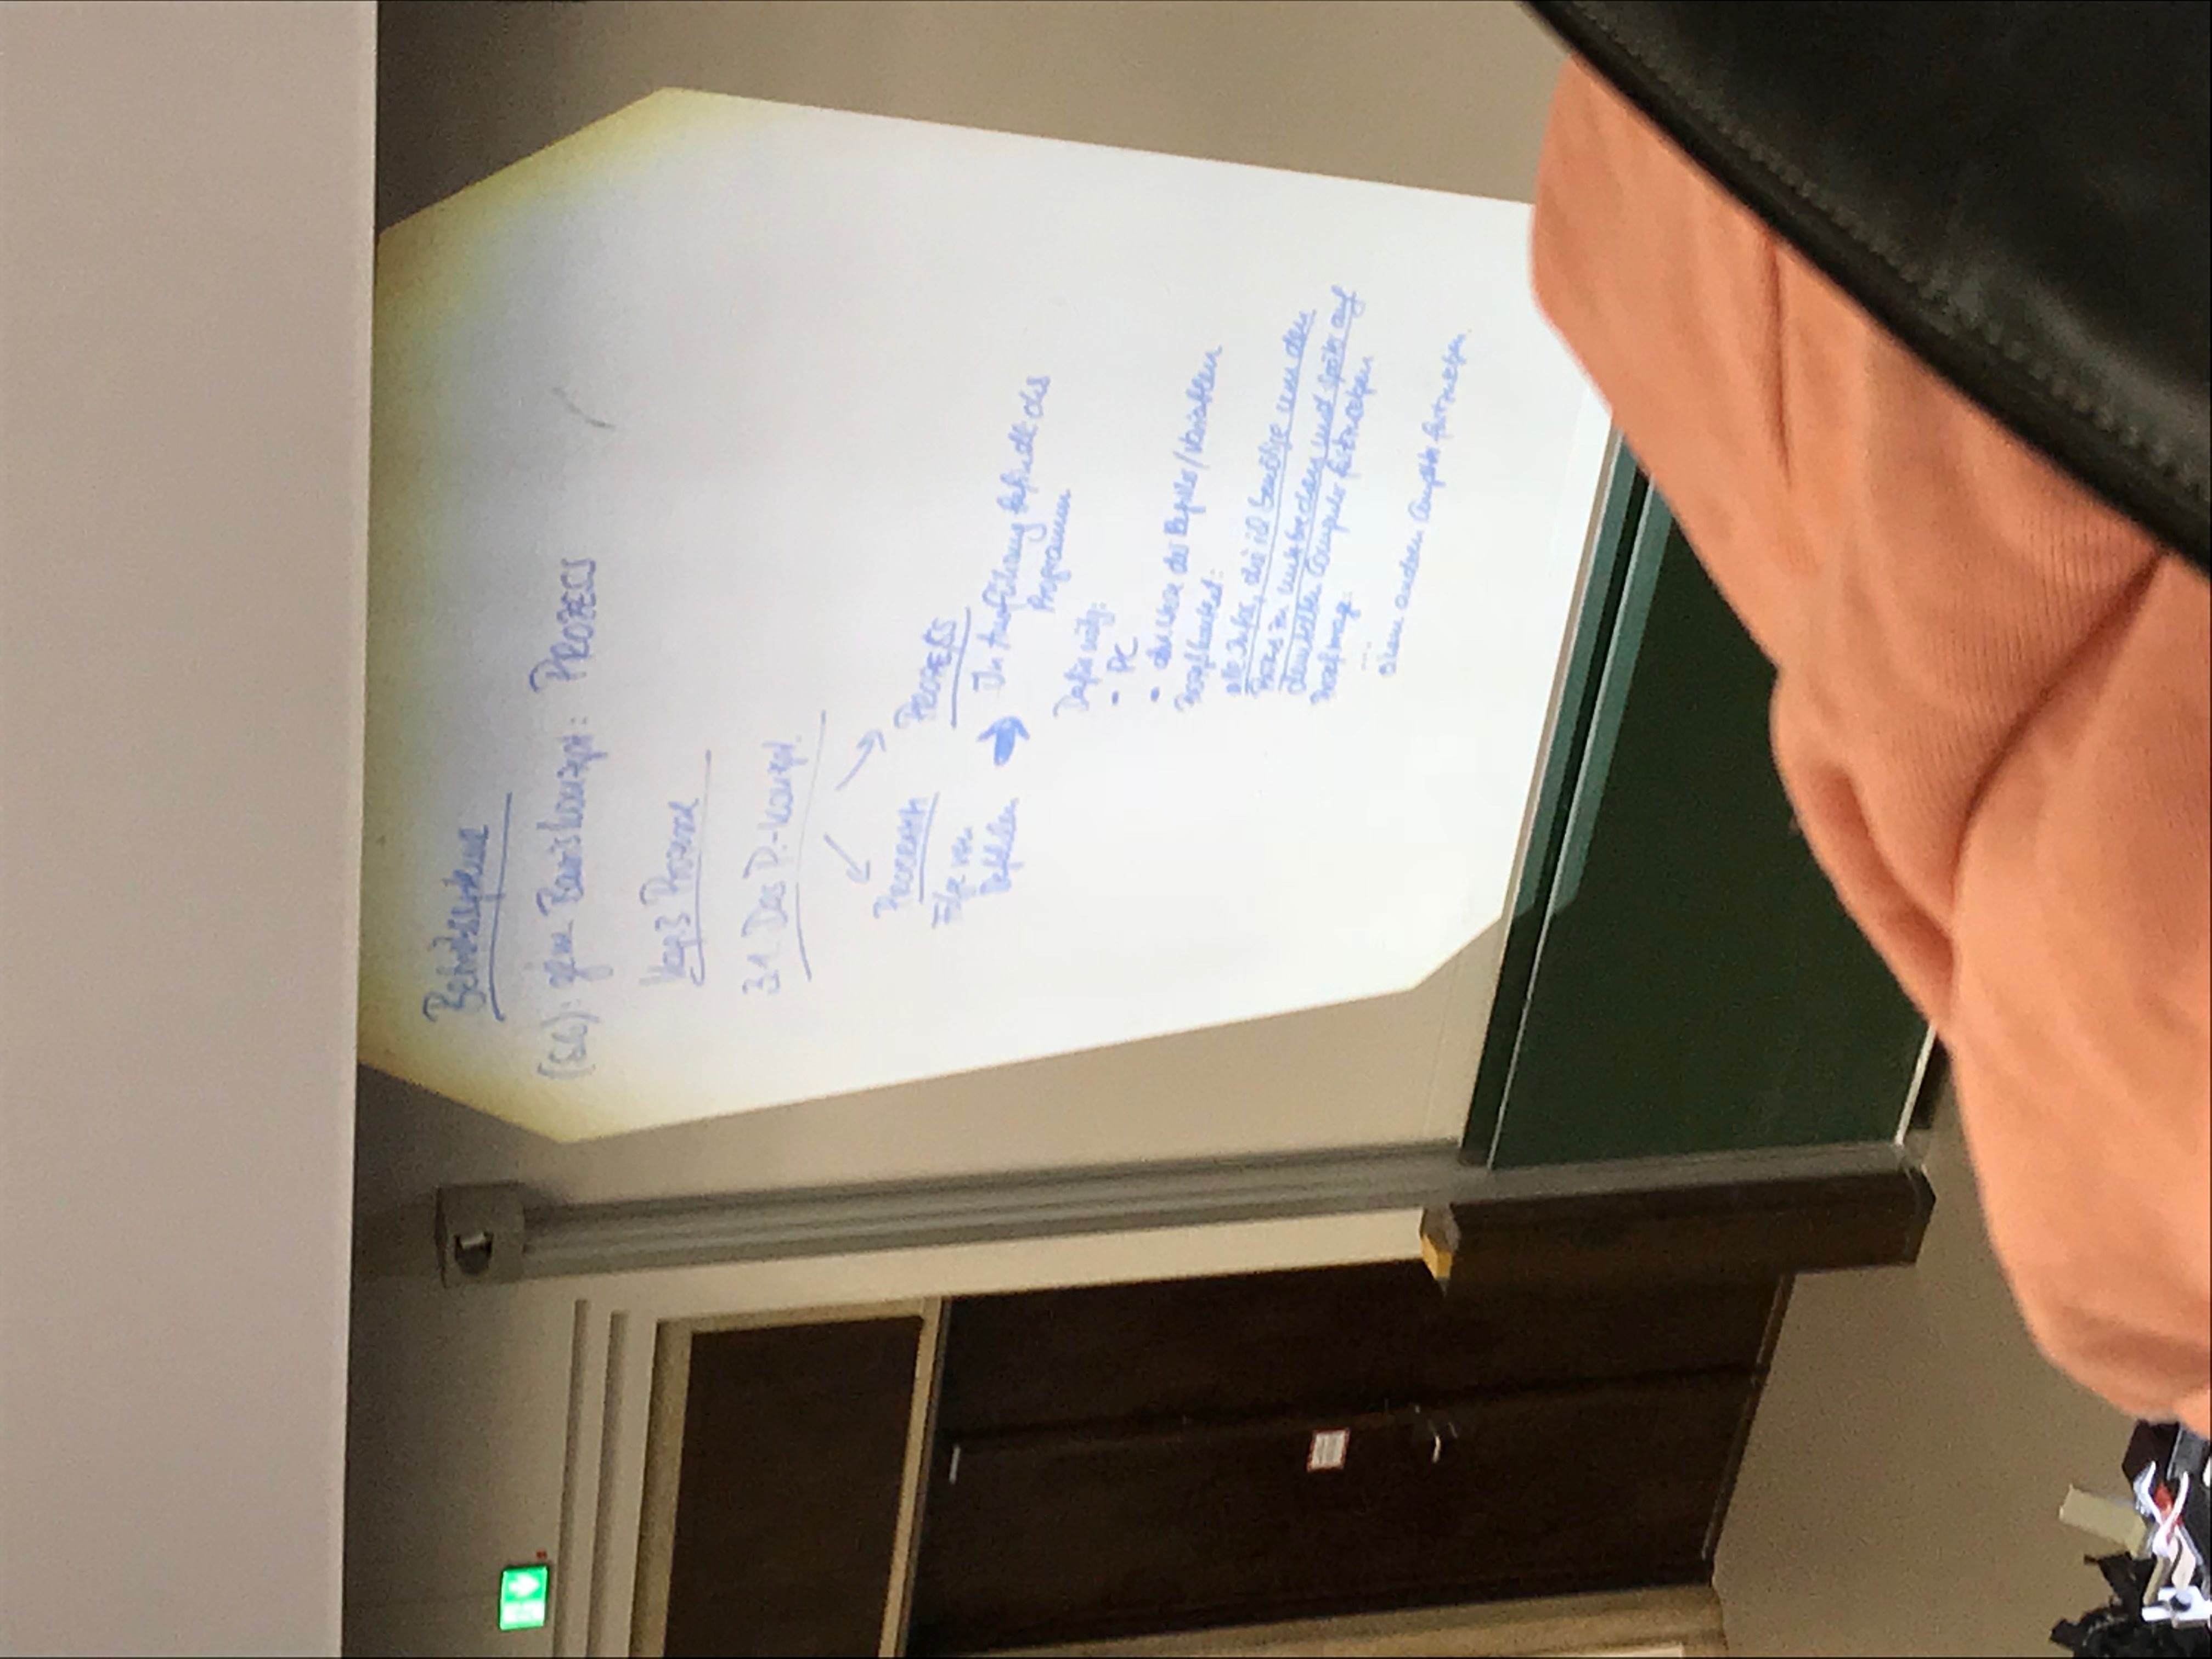 Betriebssysteme
Basiskonzept: PROZESS
Kap. 3 Prozesse
3.1. Das P.-Konzept.
PROGRAMM
PROZESS
Folge von
Befehlen
In Ausführung befindl. das
Programm
Dafür nötig:
- PC
- der Register/Variablen
Prozeßkontext:
alle Infos, die ich benötige um den
Prozess zu unterbrechen und später auf
demselben Computer fortzusetzen
Prozeßimage:
...
einem anderen Computer fortzusetzen.